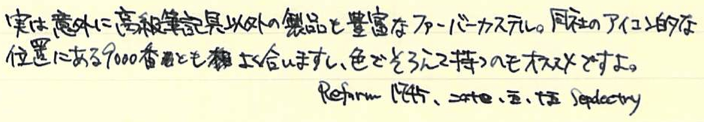 実は意外に高級筆記具以外の製品も豊富なファーバーカステル。同社のアイコン的な
位置にある9000番とも よく合いますし、色でそろえて持つのもオススメですよ。
Reform